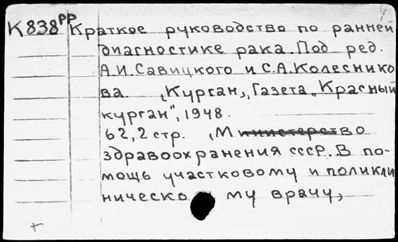 К838рр Краткое руководство по ранней
диагностике рака. Под ред.
А.И.Савицкого и С.А.Колеснико-
ва. ,Курган,,Газета„Красный
курган", 1948.
62,2стр. ,Министерство
здравоохранения СССР. В по-
мощь участковому и поликли
ническо му врачу,